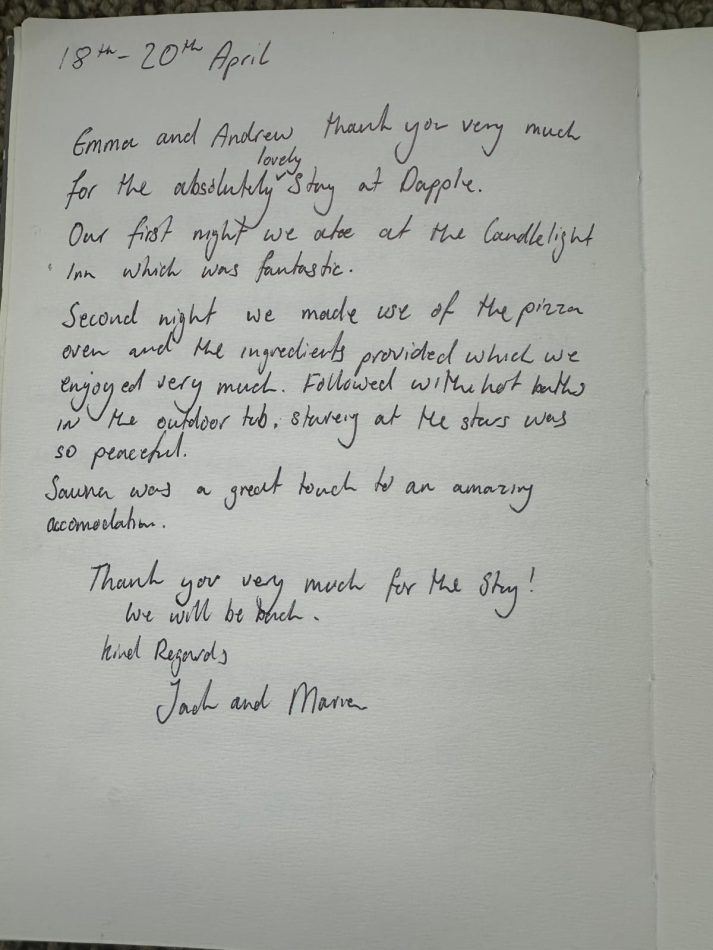 18th - 20th April
Emma and Andrew thank you very much
for the absolutely lovely stay at Dapple.
Our first night we ate at the Candlelight
Inn which was fantastic.
Second night we made use of the pizza
oven and the ingredients provided which we
enjoyed very much. Followed with hot baths
in the outdoor tub, stareig at the stars was
so peaceful.
Sauna was a great touch to an amazing
accomodation.
Thank you very much for the stay!
We will be back.
Kind Regards
Jack and